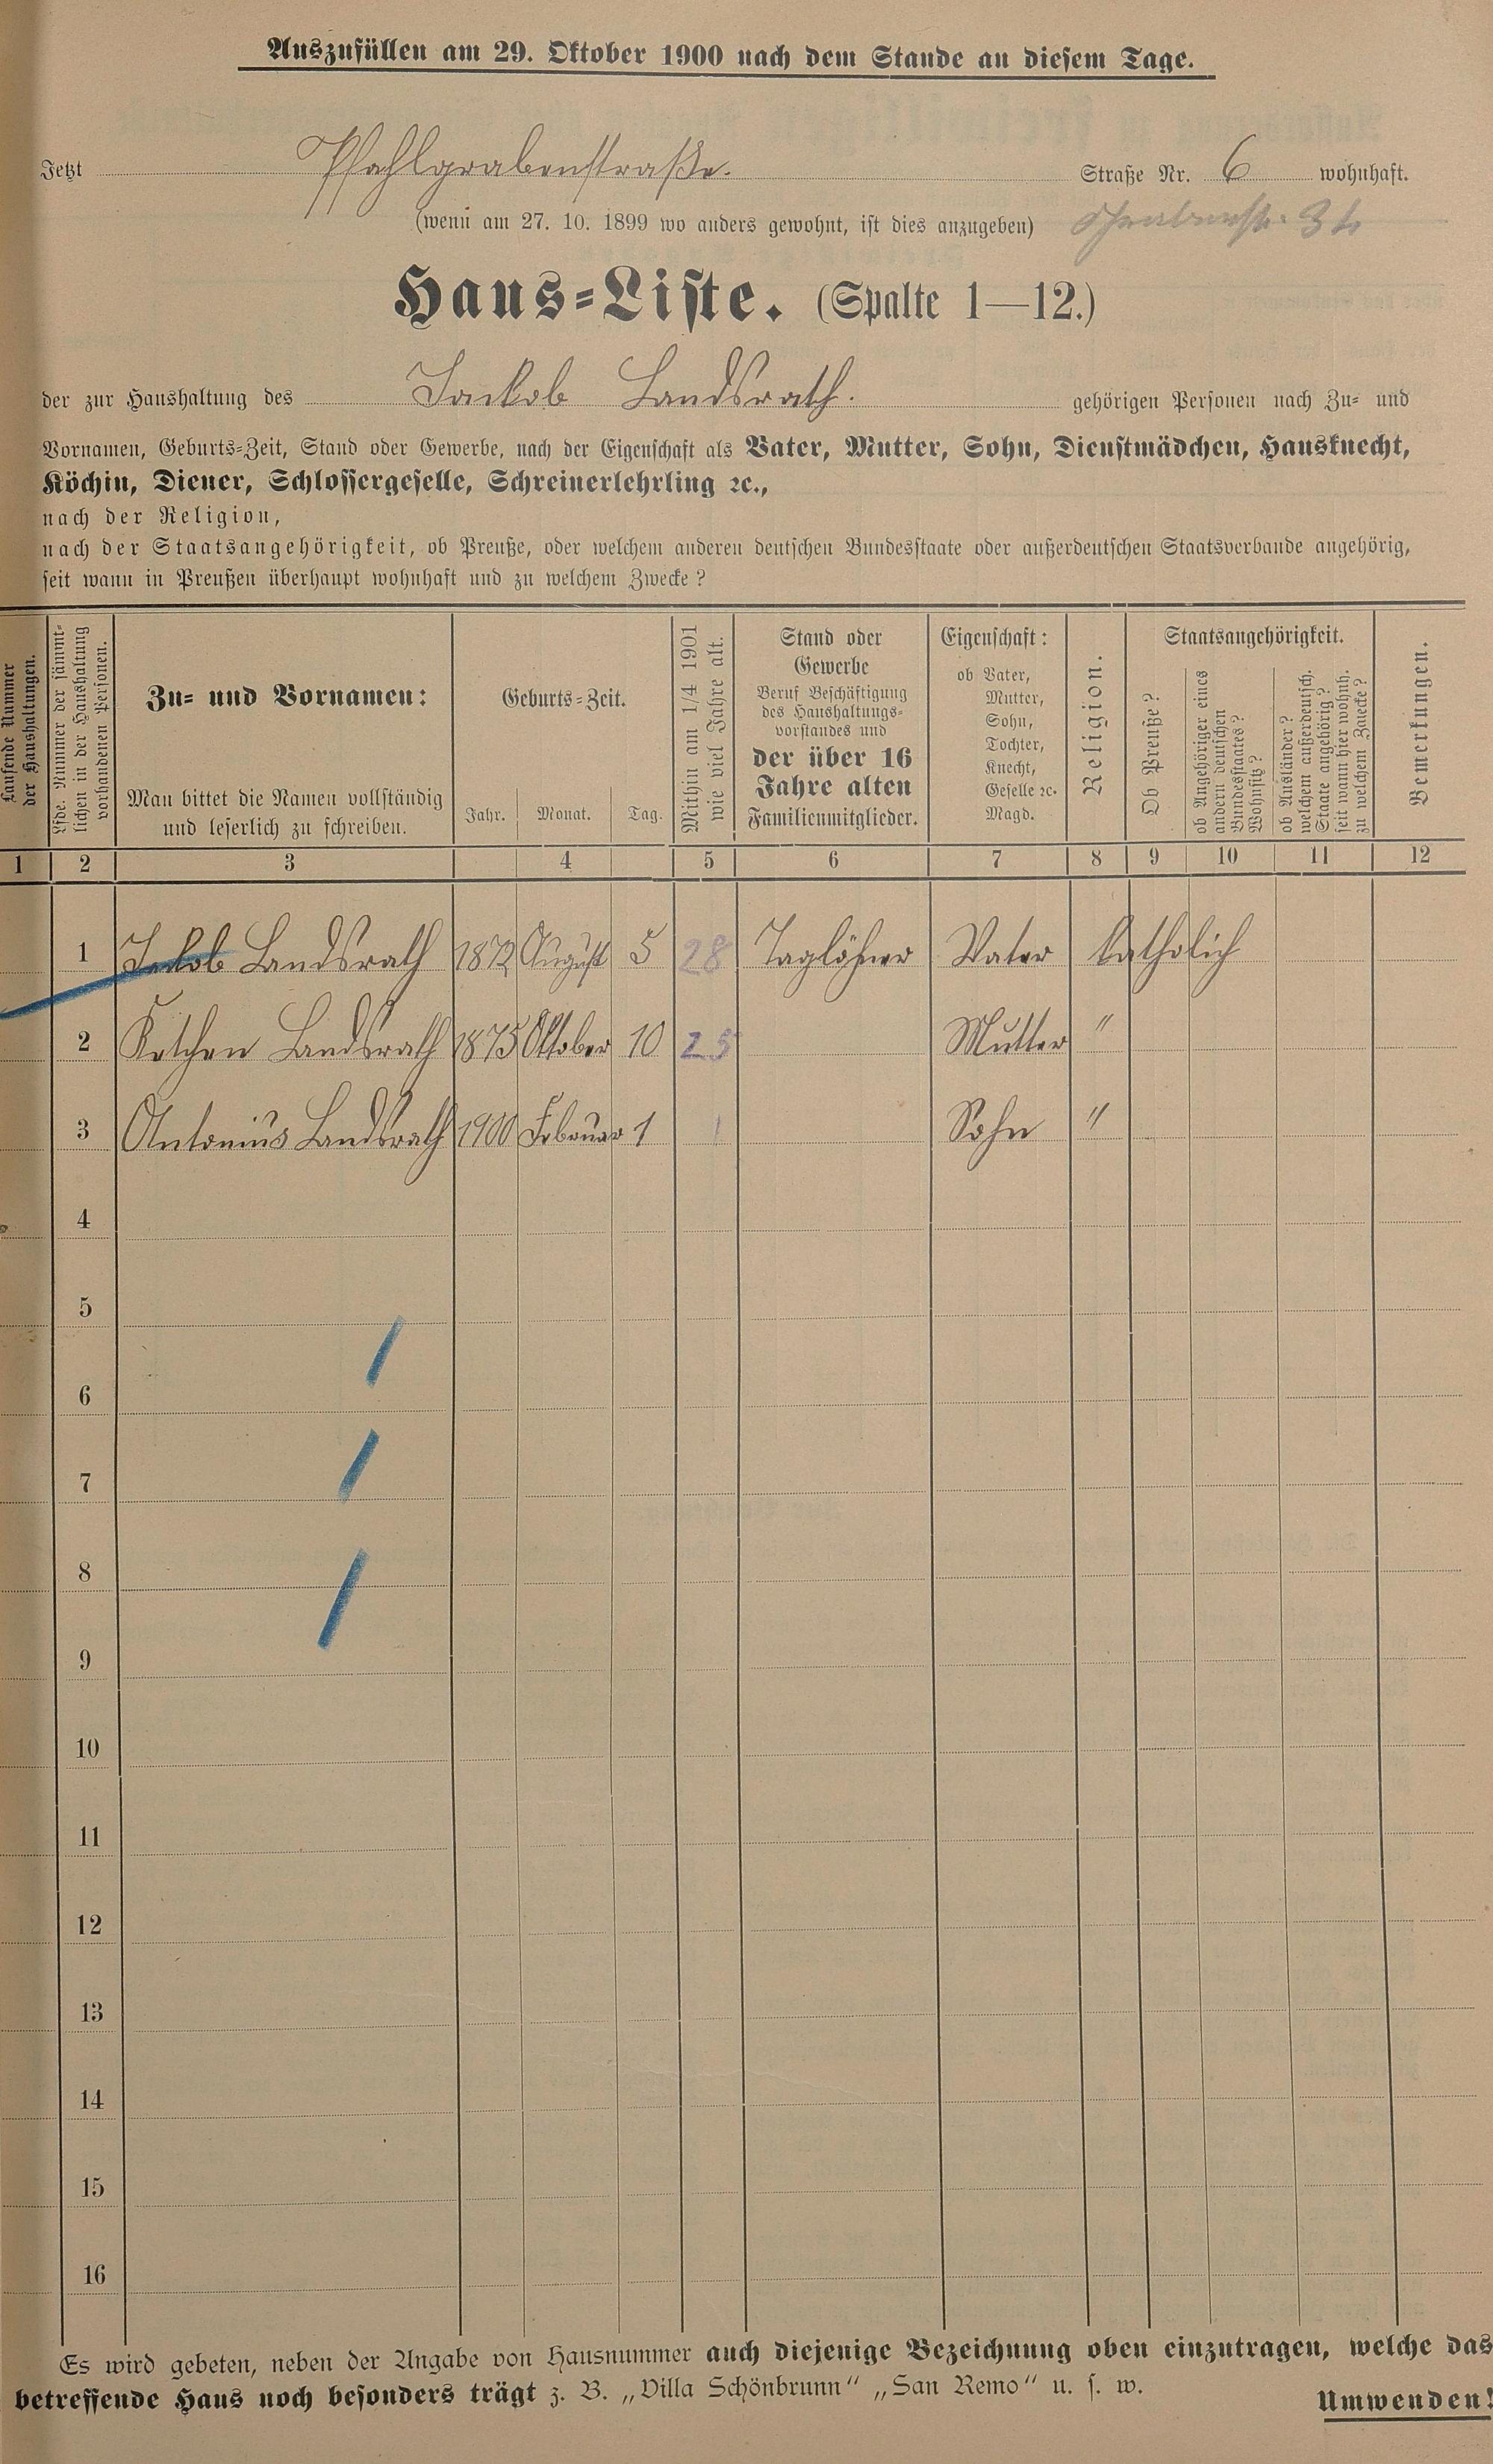 Auszufüllen am 29. Oktober 1900 nach dem Stande an diesem Tage.
Jetzt Pfahlgrabenstraße. Straße Nr. 6 wohnhaft.
(wenn am 27. 10. 1899 wo anders gewohnt, ist dies anzugeben)
Haus=Liste. (Spalte 1—12.)
der zur Haushaltung des Jackob Landsrath. gehörigen Personen nach Zu= und
Vornamen, Geburts=Zeit, Stand oder Gewerbe, nach der Eigenschaft als Vater, Mutter, Sohn, Dienstmädchen, Hausknecht,
Köchin, Diener, Schlossergeselle, Schreinerlehrling ꝛc.,
nach der Religion,
nach der Staatsangehörigkeit, ob Preuße, oder welchem anderen deutschen Bundesstaate oder außerdeutschen Staatsverbande angehörig,
seit wann in Preußen überhaupt wohnhaft und zu welchem Zwecke?
Laufende Nummer
der Haushaltungen.
Lfde. Nummer der sämmt=
lichen in der Haushaltung
vorhandenen Personen.
Zu= und Vornamen:
Man bittet die Namen vollständig
und leserlich zu schreiben.
Geburts=Zeit.
Jahr. Monat. Tag.
Mithin am 1/4 1901
wie viel Jahre alt.
Stand oder
Gewerbe
Beruf Beschäftigung
des Haushaltungs=
vorstandes und
der über 16
Jahre alten
Familienmitglieder.
Eigenschaft:
ob Vater,
Mutter,
Sohn,
Tochter,
Knecht,
Geselle ꝛc.
Magd.
Religion.
Staatsangehörigkeit.
Ob Preuße?
ob Angehöriger eines
andern deutschen
Bundesstaates?
Wohnsitz?
ob Ausländer?
welchem außerdeutsch.
Staate angehörig?
seit wann hier wohnh.
zu welchem Zwecke?
Bemerkungen.
1 2 3 4 5 6 7 8 9 10 11 12
1 Jakob Landsrath 1872 August 5 28 Taglöhner Vater katholich
2 Ketchen Landsrath 1875 Oktober 10 25 Mutter "
3 Antonius Landsrath 1900 Februar 1 1 Sohn "
4
5
6
7
8
9
10
11
12
13
14
15
16
Es wird gebeten, neben der Angabe von Hausnummer auch diejenige Bezeichnung oben einzutragen, welche das
betreffende Haus noch besonders trägt z. B. „Villa Schönbrunn“ „San Remo“ u. s. w.
Umwenden!